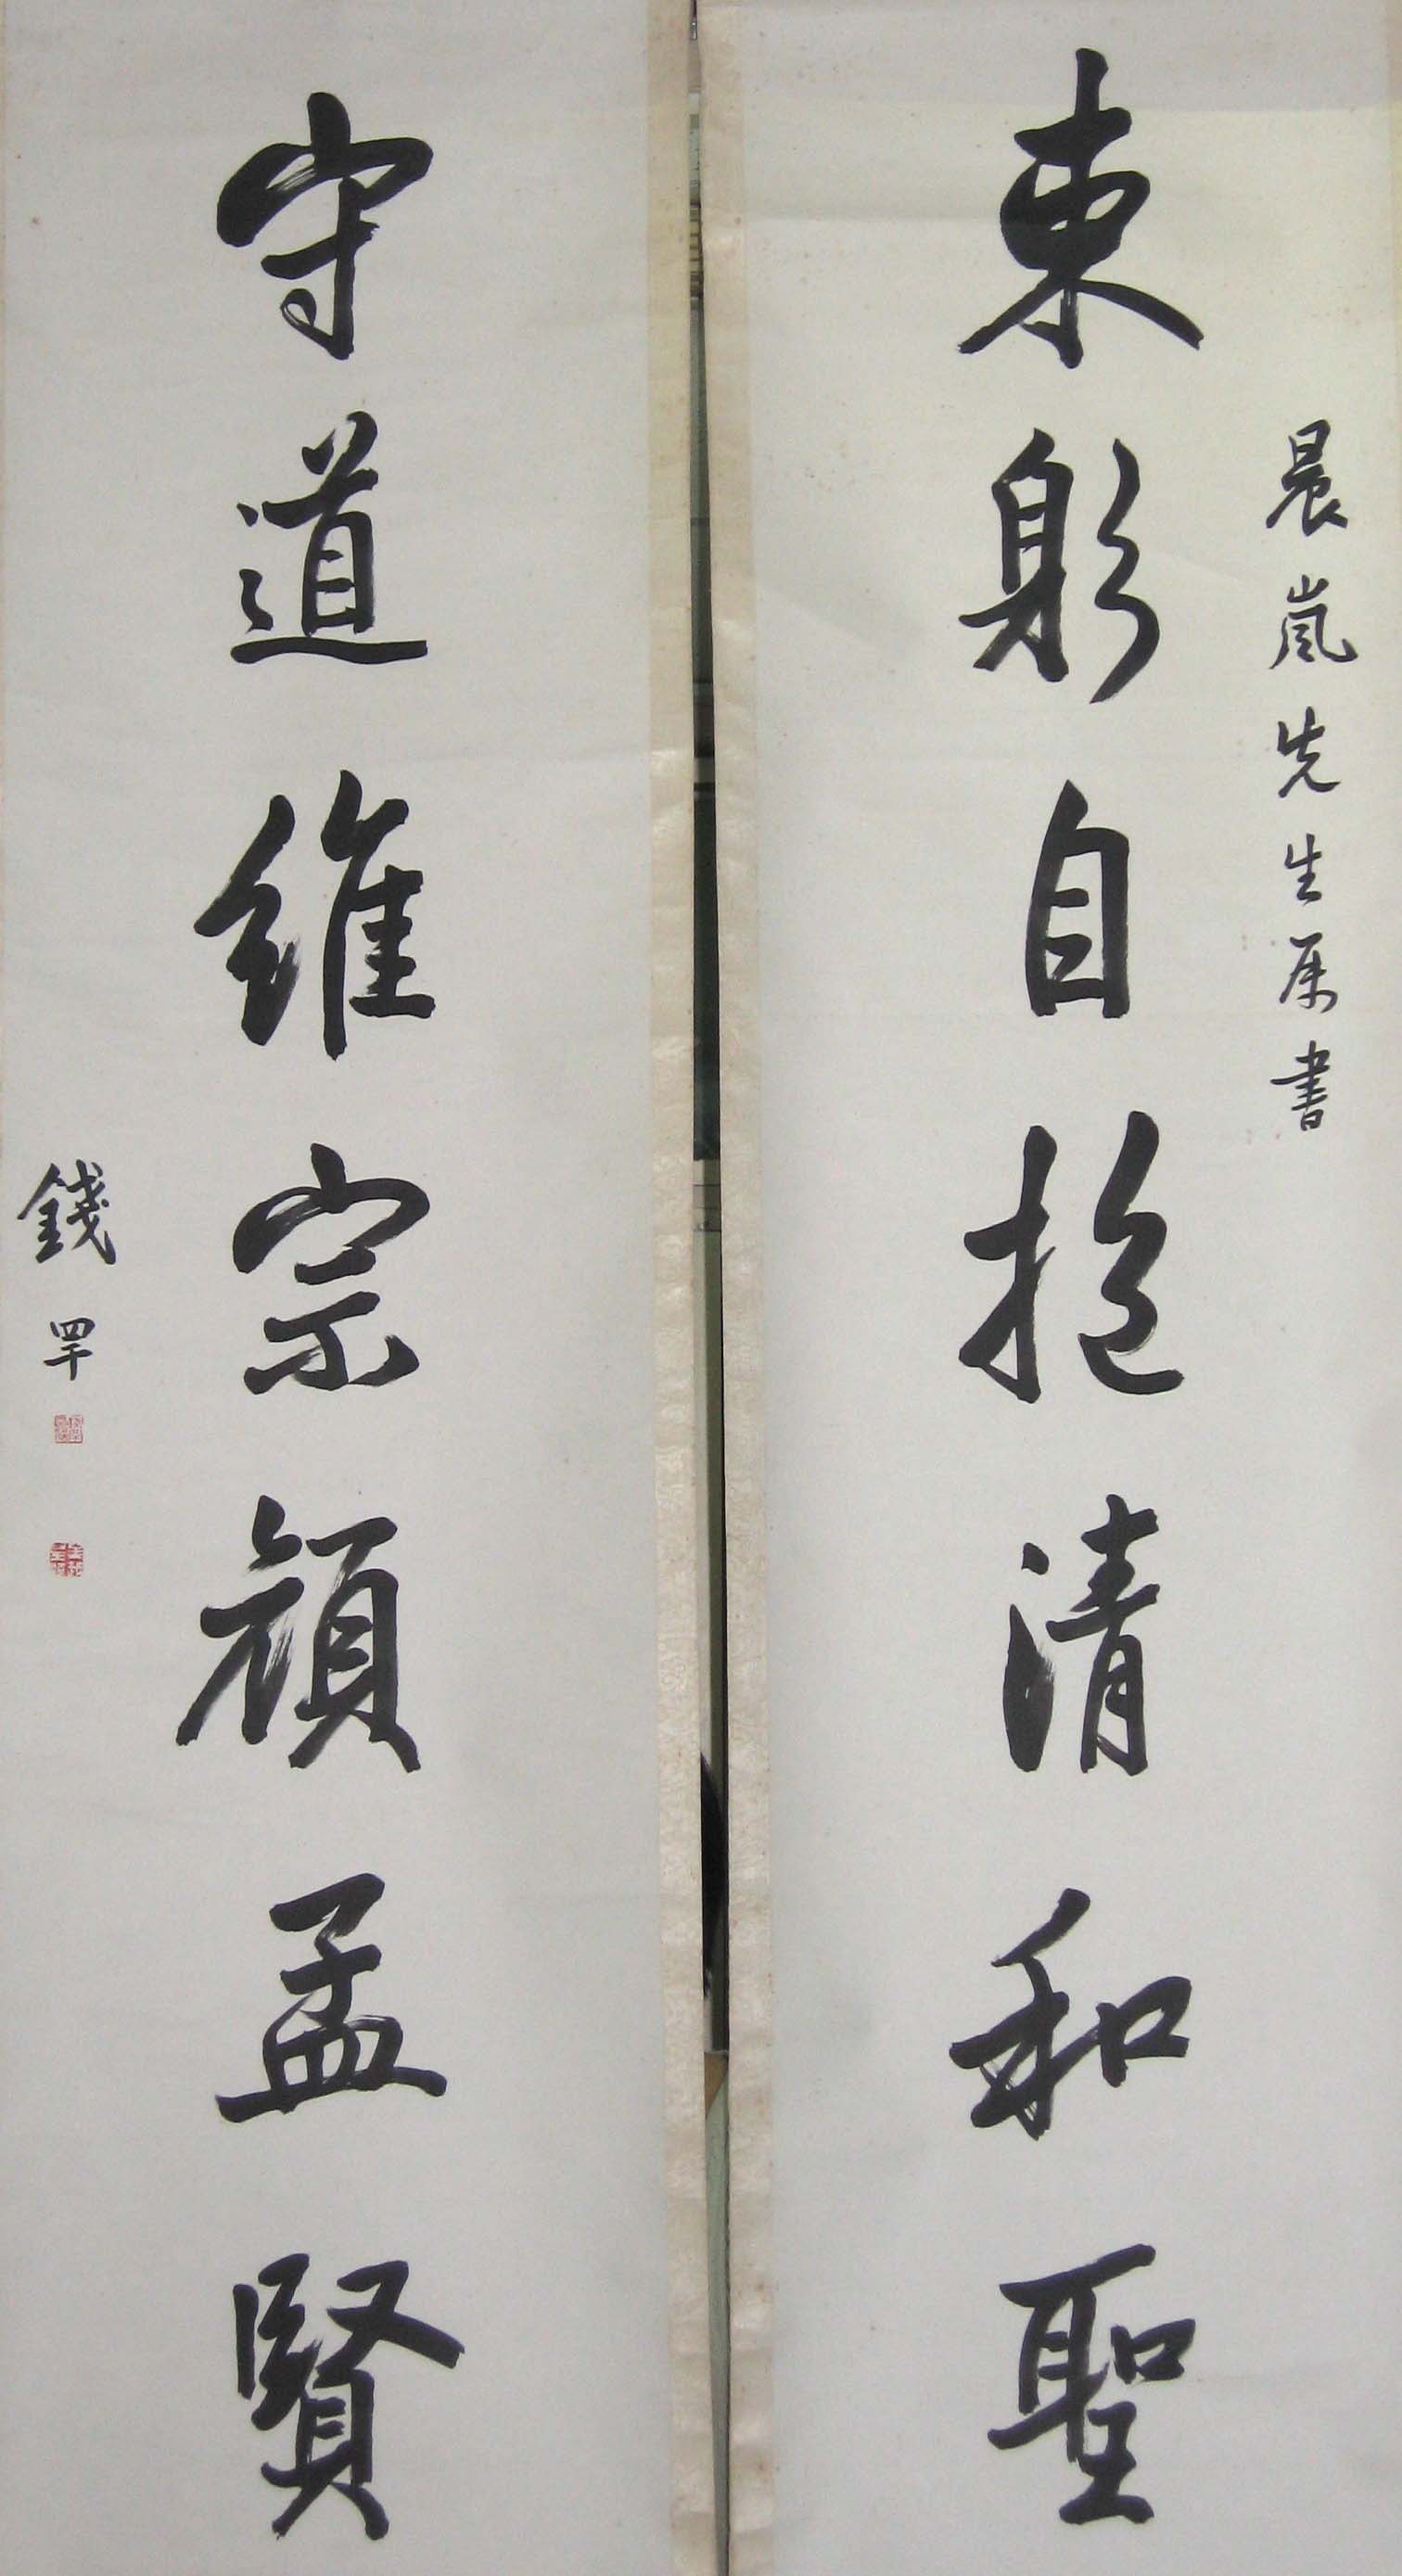 晨嵐先生属書
束躬自抱清和聖
守道維宗顔孟賢
錢罕